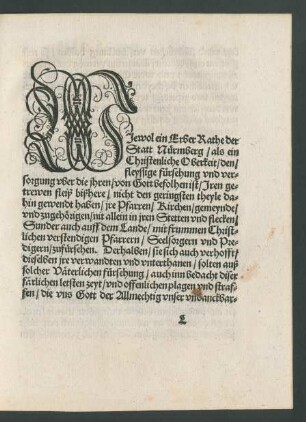 Wiewol ein Erber Rathe der
Statt Nürmberg / als ein
Christenliche Oberkeit / den /
fleyssige fürsehung vnd ver-
sorgung vber die jhren / von Gott befolhen ist / Iren ge-
trewen fleiß bißhere / nicht den geringsten theyle da-
hin gewendt haben / jre Pfarren / Kirchen / gemeynde /
vnd zugehörigen / nit allein in jren Stetten vnd flecken /
Sunder auch auff dem Lande / mit frummen Christ-
lichen verstendigen Pfarrern / Seelsorgern vnd Pre-
digern / zufürsehen. Derhalben / sie sich auch verhofft /
dieselben jre verwandten vnd vnterthanen / solten auß
solcher Väterlichen fürsehung / auch im bedacht diser
färlichen letsten zeyt / vnd offenlichen plagen vnd straf-
fen / die vns Gott der Allmechtig vnser vndanckbar-